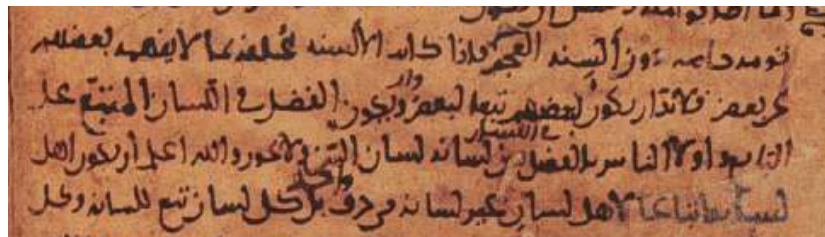 قومه خاصه دون ألسنه العجم فاذا كانت الألسنه مختلفه بما لا يفهمه بعضهم
عن بعض فلا بد ان يكون بعضهم تبعا لبعض وان يكون الفضل في اللسان المتبع على
التابع واولا الناس بالفضل في اللسان من لسانه لسان النبي ولا يجوز والله اعلم ان يكون اهل
لسانه اتباعا لاهل لسان غير لسانه في حرف واحد بل كل لسان تبع للسانه وكل